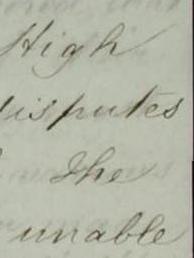 High
disputes
The
unable